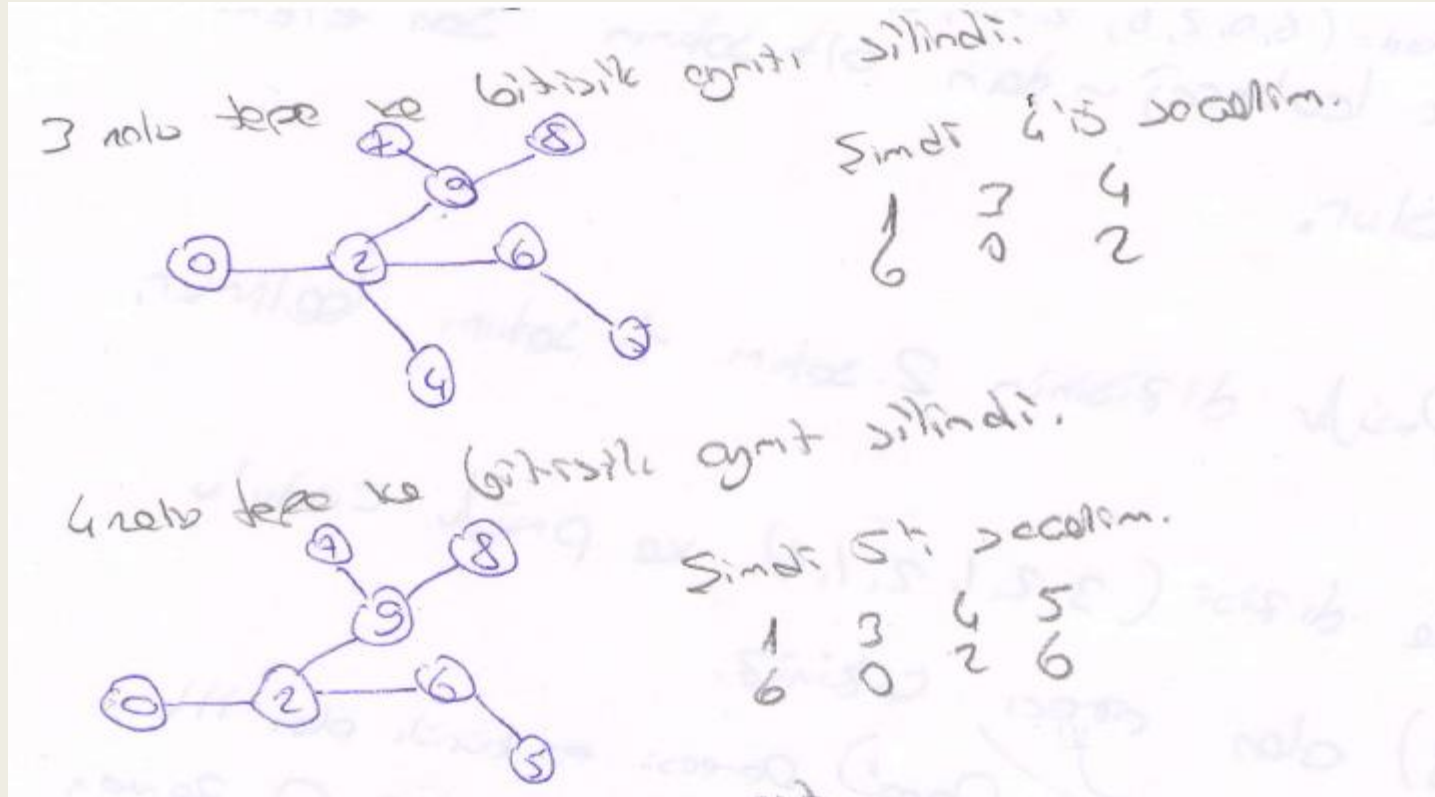 3 nolu tepe ve bitişik ayrıtı silindi.
7 8
9
0 2 6
5
4
Şimdi 4'ü seçelim.
1 3 4
6 0 2
4 nolu tepe ve bitişik ayrıt silindi.
7 8
9
0 2 6
5
Şimdi 5'i seçelim.
1 3 4 5
6 0 2 6